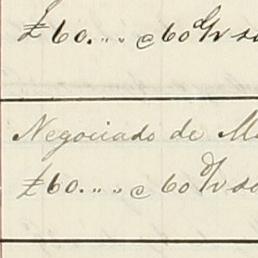 £60.,, ,, @ 60 d/v
Negociado de
£60.,, ,, @ 60 d/v